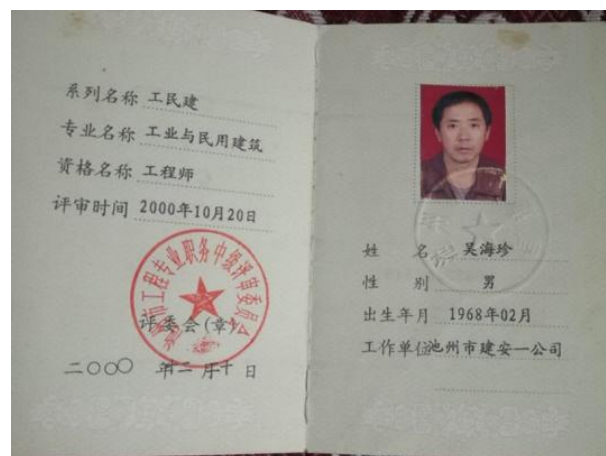 系列名称 工民建
专业名称 工业与民用建筑
资格名称 工程师
评审时间 2000年10月20日
市工程专业职务中级评审委员会
评委会(章)
二〇〇〇年二月十日
姓名 吴海珍
性别 男
出生年月 1968年02月
工作单位池州市建安一公司